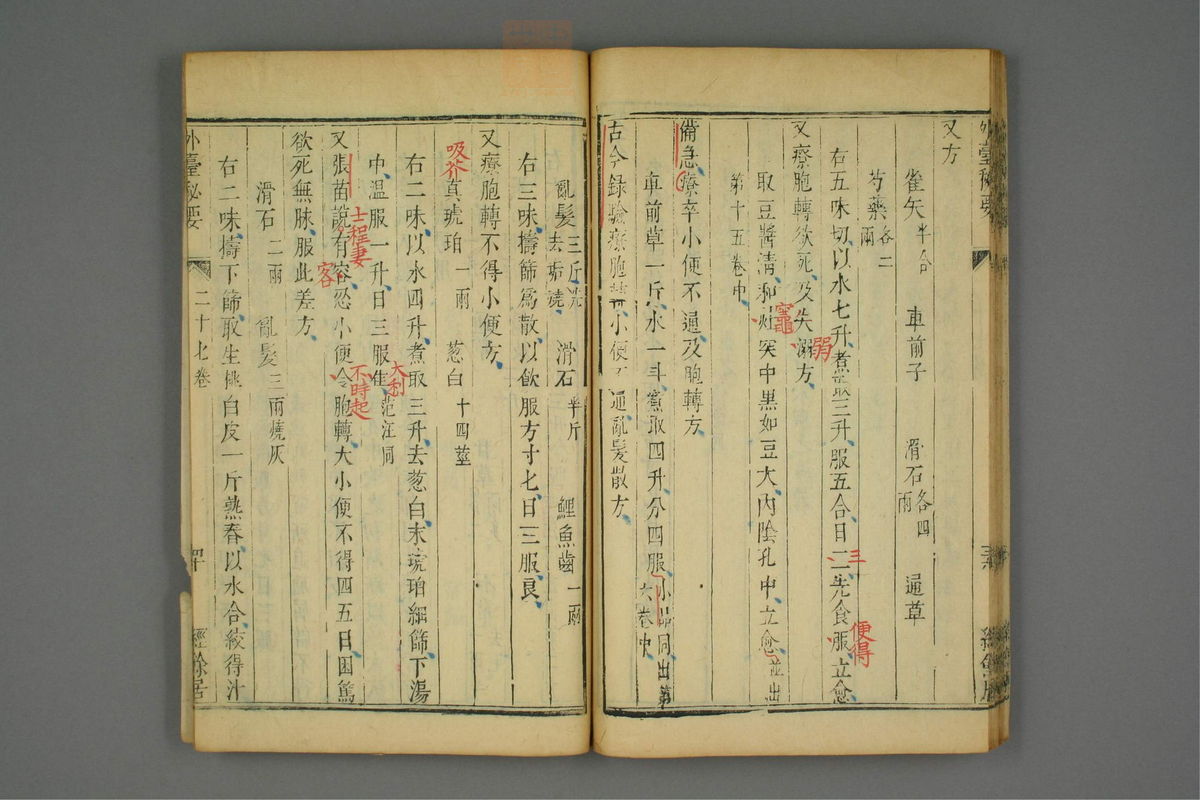 又方
雀矢半合 車前子 滑石各四兩 通草
芍藥各二兩
右五味切以水七升煮取三升服五合日二三先食服立愈
便得
又療胞轉欲死及失溺方
弱
取豆醬清和灶突中黒如豆大内陰孔中立愈並出
竈
第十五卷中
備急療卒小便不通及胞轉方
車前草一斤水一斗煮取四升分四服小品同出第
六卷中
古今録驗療胞轉小便不通亂髮散方
亂髮三斤洗去垢燒 滑石半斤 鯉魚齒一兩
右三味擣篩爲散以飲服方寸匕日三服良
又療胞轉不得小便方
真琥珀一兩 葱白十四莖
吸芥
右二味以水四升煮取三升去葱白末琥珀細篩下湯
中温服一升日三服佳范汪同
大利
又張苗說有容忿小便令胞轉大小便不得四五日困篤
士程妻
客
不時起
欲死無脉服此差方
滑石二兩 亂髮三兩燒灰
右二味擣下篩取生桃白皮一斤熟舂以水合絞得汁
外臺秘要 二十七卷 四十 經餘居